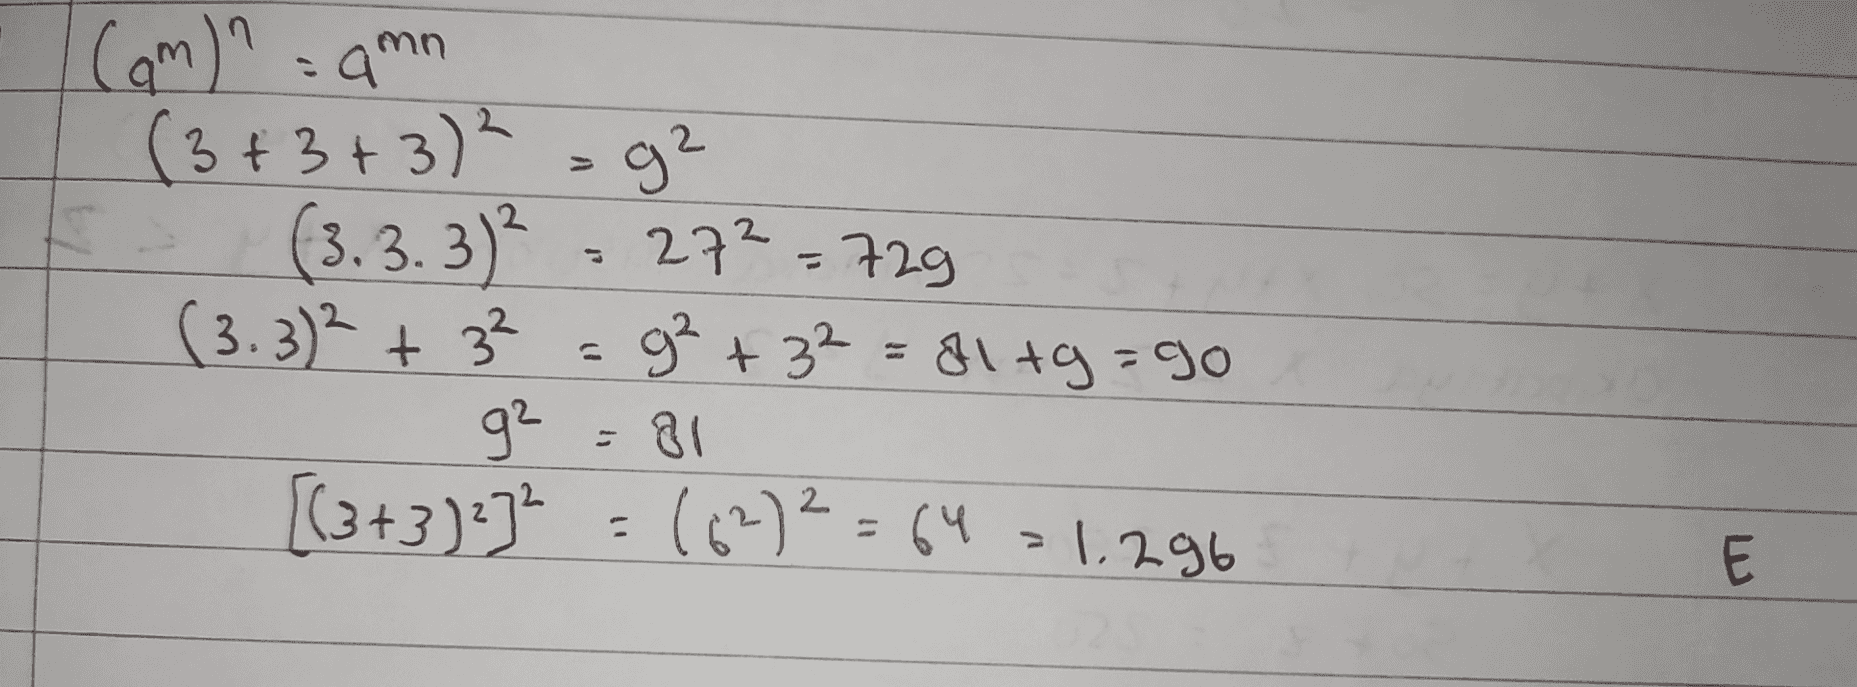 (a^m)^n = a^mn
(3 + 3 + 3)² = 9²
(3.3.3)² = 27² = 729
(3.3)² + 3² = 9² + 3² = 81 + 9 = 90
9² = 81
[(3+3)²]² = (6²)² = 6⁴ = 1.296 E